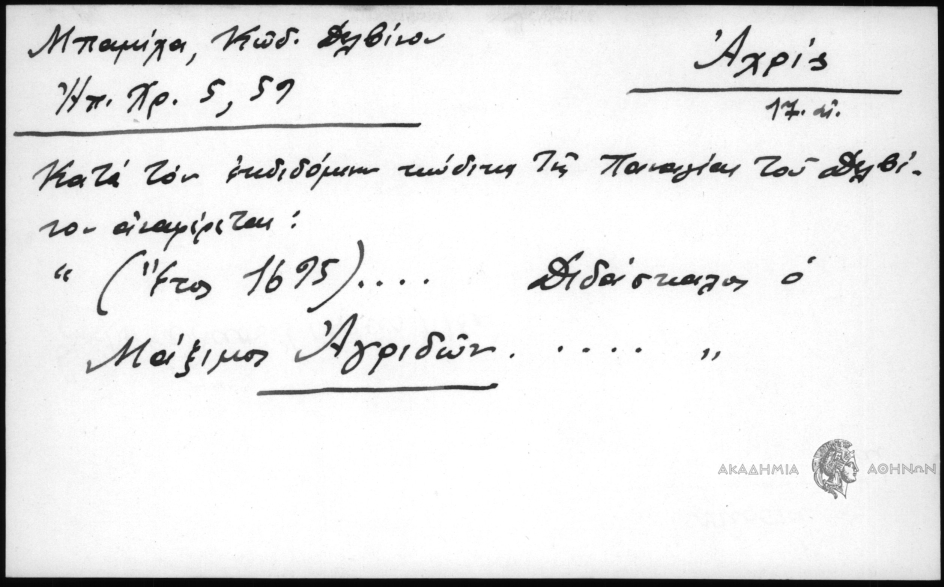 Μπαμίχα, Κώδ. Δελβίνου
Ἠπ. Χρ. 5, 59
Ἀχρίς
17. αἰ.
Κατά τόν ἐκδιδόμενον κώδικα τῆς Παναγίας τοῦ Δελβί-
νου ἀναφέρεται:
“ (Ἔτος 1695).... Διδάσκαλος ὁ
Μάξιμος Ἀγριδῶν. .... ”
ΑΚΑΔΗΜΙΑ ΑΘΗΝΩΝ